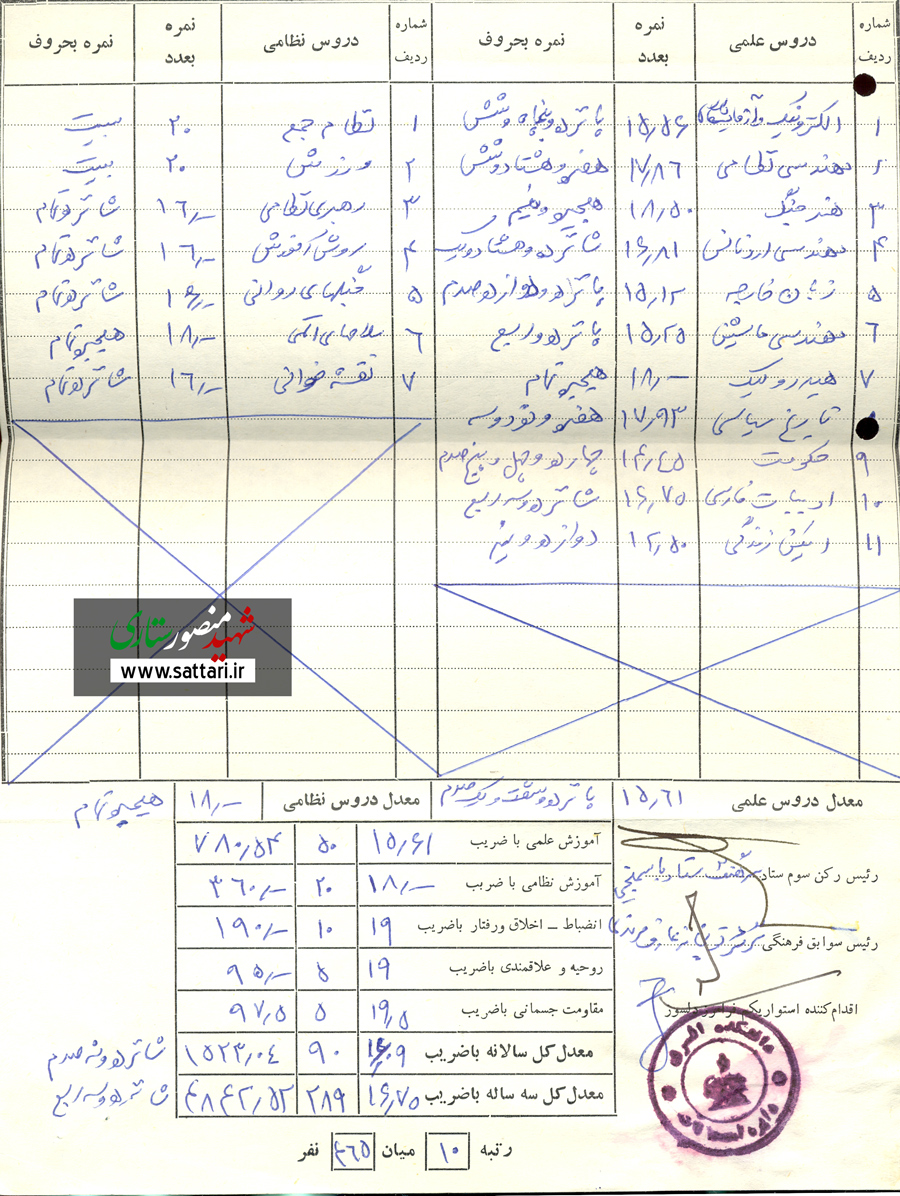 شماره ردیف دروس علمی نمره بعدد نمره بحروف شماره ردیف دروس نظامی نمره بعدد نمره بحروف
۱ الکترونیک و آزمایشگاه ۱۵٫۵۶ پانزده و پنجاه و شش ۱ نظام جمع ۲۰ بیست
۲ مهندسی نظامی ۱۷٫۸۶ هفده و هشتاد و شش ۲ ورزش ۲۰ بیست
۳ هنر جنگ ۱۸٫۵۰ هیجده و نیم ۳ رهبری نظامی ۱۶٫- شانزده تمام
۴ مهندسی اردنانس ۱۶٫۸۱ شانزده و هشتاد و یک ۴ روش آموزش ۱۶٫- شانزده تمام
۵ زبان خارجه ۱۵٫۱۲ پانزده و دوازده صدم ۵ جنگهای روانی ۱۶٫- شانزده تمام
۶ مهندسی ماشین ۱۵٫۲۵ پانزده و ربع ۶ سلاحهای اتمی ۱۸٫- هیجده تمام
۷ هیدرولیک ۱۸٫- هیجده تمام ۷ نقشه خوانی ۱۶٫- شانزده تمام
تاریخ سیاسی ۱۷٫۹۳ هفده و نود و سه
۹ حکومت ۱۴٫۴۵ چهارده و چهل و پنج صدم
۱۰ ادبیات فارسی ۱۶٫۷۵ شانزده و سه ربع
۱۱ زندگی ۱۲٫۵۰ دوازده و نیم
شهید منصور ستاری
www.sattari.ir
معدل دروس علمی ۱۵٫۶۱ پانزده و شصت و یک صدم معدل دروس نظامی ۱۸٫- هیجده تمام
آموزش علمی با ضریب ۱۵٫۶۱ ۵۰ ۷۸۰٫۵۴
آموزش نظامی با ضریب ۱۸٫- ۲۰ ۳۶۰٫-
انضباط ــ اخلاق ورفتار باضریب ۱۹ ۱۰ ۱۹۰٫-
روحیه و علاقمندی باضریب ۱۹ ۵ ۹۵٫-
مقاومت جسمانی باضریب ۱۹٫۵ ۵ ۹۷٫۵
معدل کل سالانه باضریب ۹۰ ۱۵۲۳٫۰۴ شانزده و نه صدم
معدل کل سه ساله باضریب ۱۶٫۷۵ ۲۸۹ ۴۸۴۲٫۵۲ شانزده و سه ربع
رئیس رکن سوم ستاد سرهنگ ستاد
رئیس سوابق فرهنگی
اقدام‌کننده استواریکم
دانشکده افسری
رتبه ۱۰ میان ۴۶۵ نفر